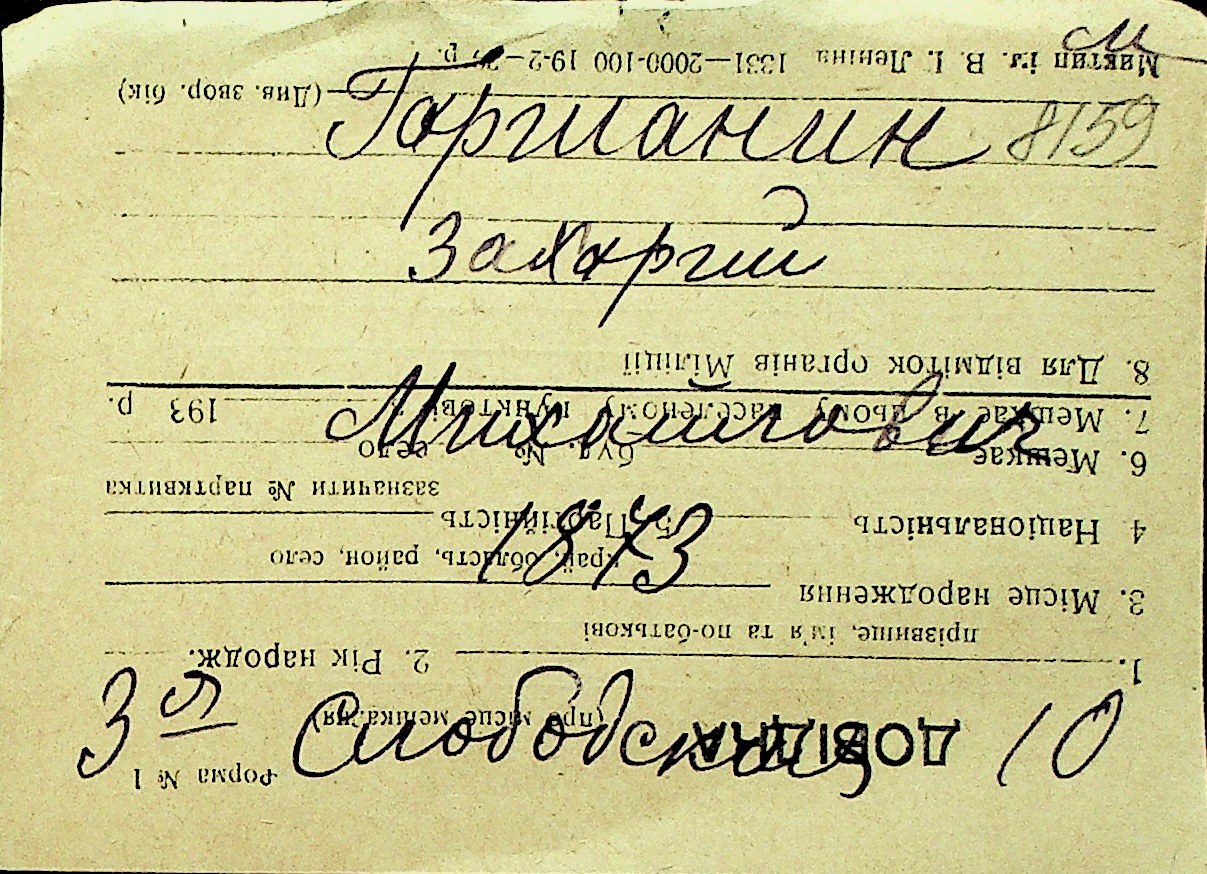 м
Гаршанин 8159
Захарий
Михайлович
1873
3я Слободская 10
Форма № 1
ДОВІДКА
(про місце мешкання)
1. 2. Рік народж.
прізвище, ім'я та по-батькові
3. Місце народження
край, область, район, село
4 Національність 5. Партійність
зазначити № партквитка
6. Мешкає буд. № село
7. Мешкає в цьому населеному пунктові з 193 р.
8. Для відміток органів Міліції
(Див. звор. бік)
Миктип ім. В. І. Леніна 1331—2000-100 19-2— р.